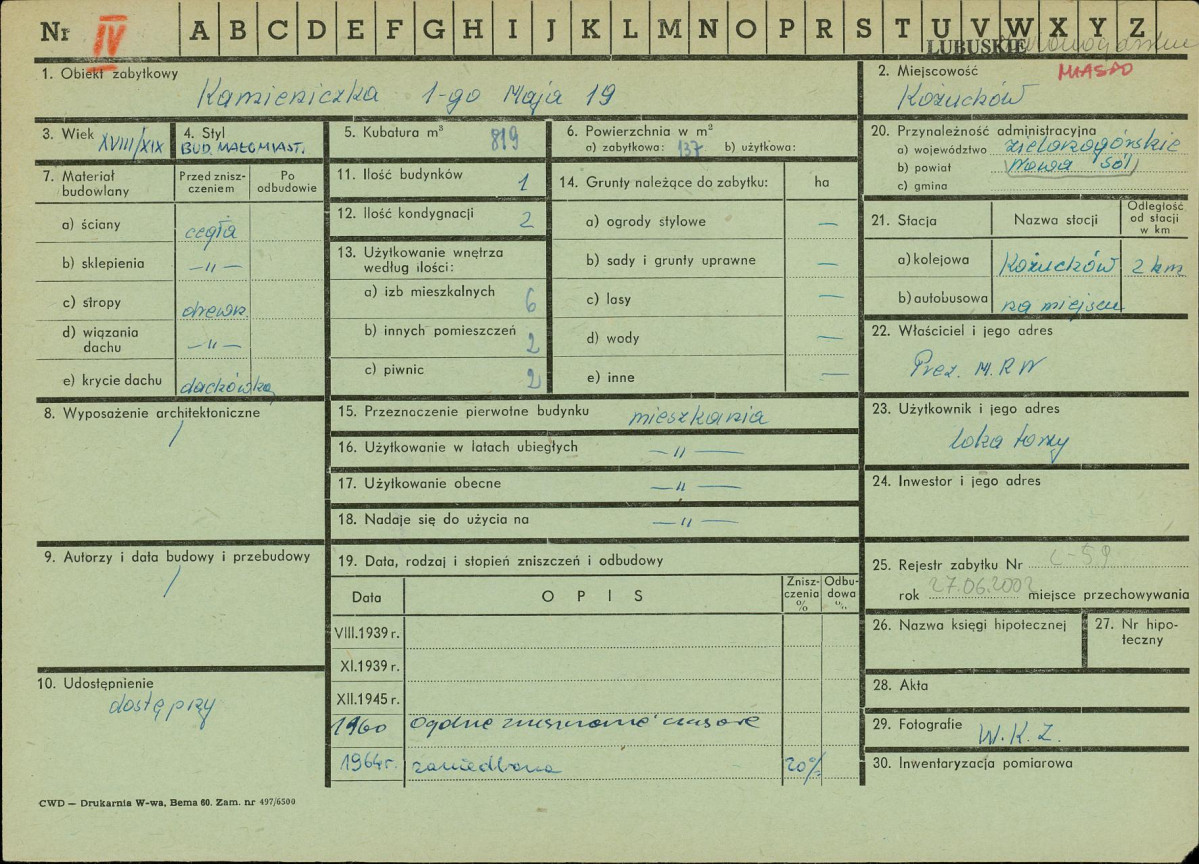 Nr IV A B C D E F G H I J K L M N O P R S T U V W X Y Z
LUBUSKIE
1. Obiekt zabytkowy
Kamieniczka 1-go Maja 19
2. Miejscowość MIASTO
Kożuchów
3. Wiek XVIII/XIX
4. Styl
BUD. MAŁOMIAST.
5. Kubatura m³ 819
6. Powierzchnia w m²
a) zabytkowa: 137 b) użytkowa:
20. Przynależność administracyjna
a) województwo zielonogórskie
b) powiat Nowa Sól
c) gmina
7. Materiał budowlany
Przed zniszczeniem
Po odbudowie
a) ściany cegła
b) sklepienia —„—
c) stropy drewn.
d) wiązania dachu —„—
e) krycie dachu dachówka
11. Ilość budynków 1
12. Ilość kondygnacji 2
13. Użytkowanie wnętrza
według ilości:
a) izb mieszkalnych 6
b) innych pomieszczeń 2
c) piwnic 2
14. Grunty należące do zabytku: ha
a) ogrody stylowe —
b) sady i grunty uprawne —
c) lasy —
d) wody —
e) inne —
21. Stacja
Nazwa stacji
Odległość od stacji w km
a) kolejowa Kożuchów 2 km
b) autobusowa na miejscu
22. Właściciel i jego adres
Prez. M.R N
8. Wyposażenie architektoniczne
/
15. Przeznaczenie pierwotne budynku mieszkania
16. Użytkowanie w latach ubiegłych —„—
17. Użytkowanie obecne —„—
18. Nadaje się do użycia na —„—
23. Użytkownik i jego adres
lokatorzy
24. Inwestor i jego adres
9. Autorzy i data budowy i przebudowy
/
19. Data, rodzaj i stopień zniszczeń i odbudowy
Data
O P I S
Zniszczenia %
Odbudowa %
VIII.1939 r.
XI.1939 r.
XII.1945 r.
1960 Ogólne zniszczenie czasowe
1964r. zaniedbana 20%
25. Rejestr zabytku Nr
rok 27.06.2002 miejsce przechowywania
26. Nazwa księgi hipotecznej
27. Nr hipoteczny
28. Akta
29. Fotografie W.K.Z.
30. Inwentaryzacja pomiarowa
10. Udostępnienie
CWD — Drukarnia W-wa, Bema 60. Zam. nr 497/6500